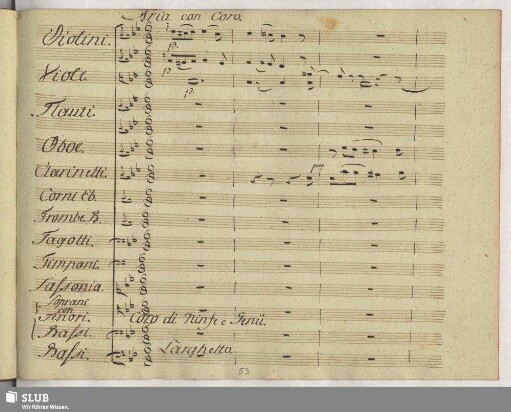 Aria con Coro.
Violini.
p.
p.
Viole.
p.
Flauti.
Oboe.
Clarinetti.
Corni Eb.
Trombe B.
Fagotti.
Timpani.
Sassonia.
Soprani
con
Tenori.
Coro di Ninfe e Genii.
Bassi.
Bassi.
Larghetto.
53
SLUB
Wir führen Wissen.